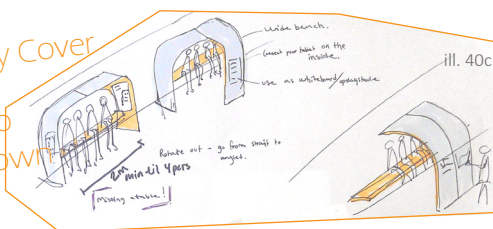 y Cover
own
wide bench.
Connect your tablet on the
inside.
use as whiteboard/opslagstavle
ill. 40c
Rotate out - go from strait to
angled.
2m min til 4 pers
Missing a table!